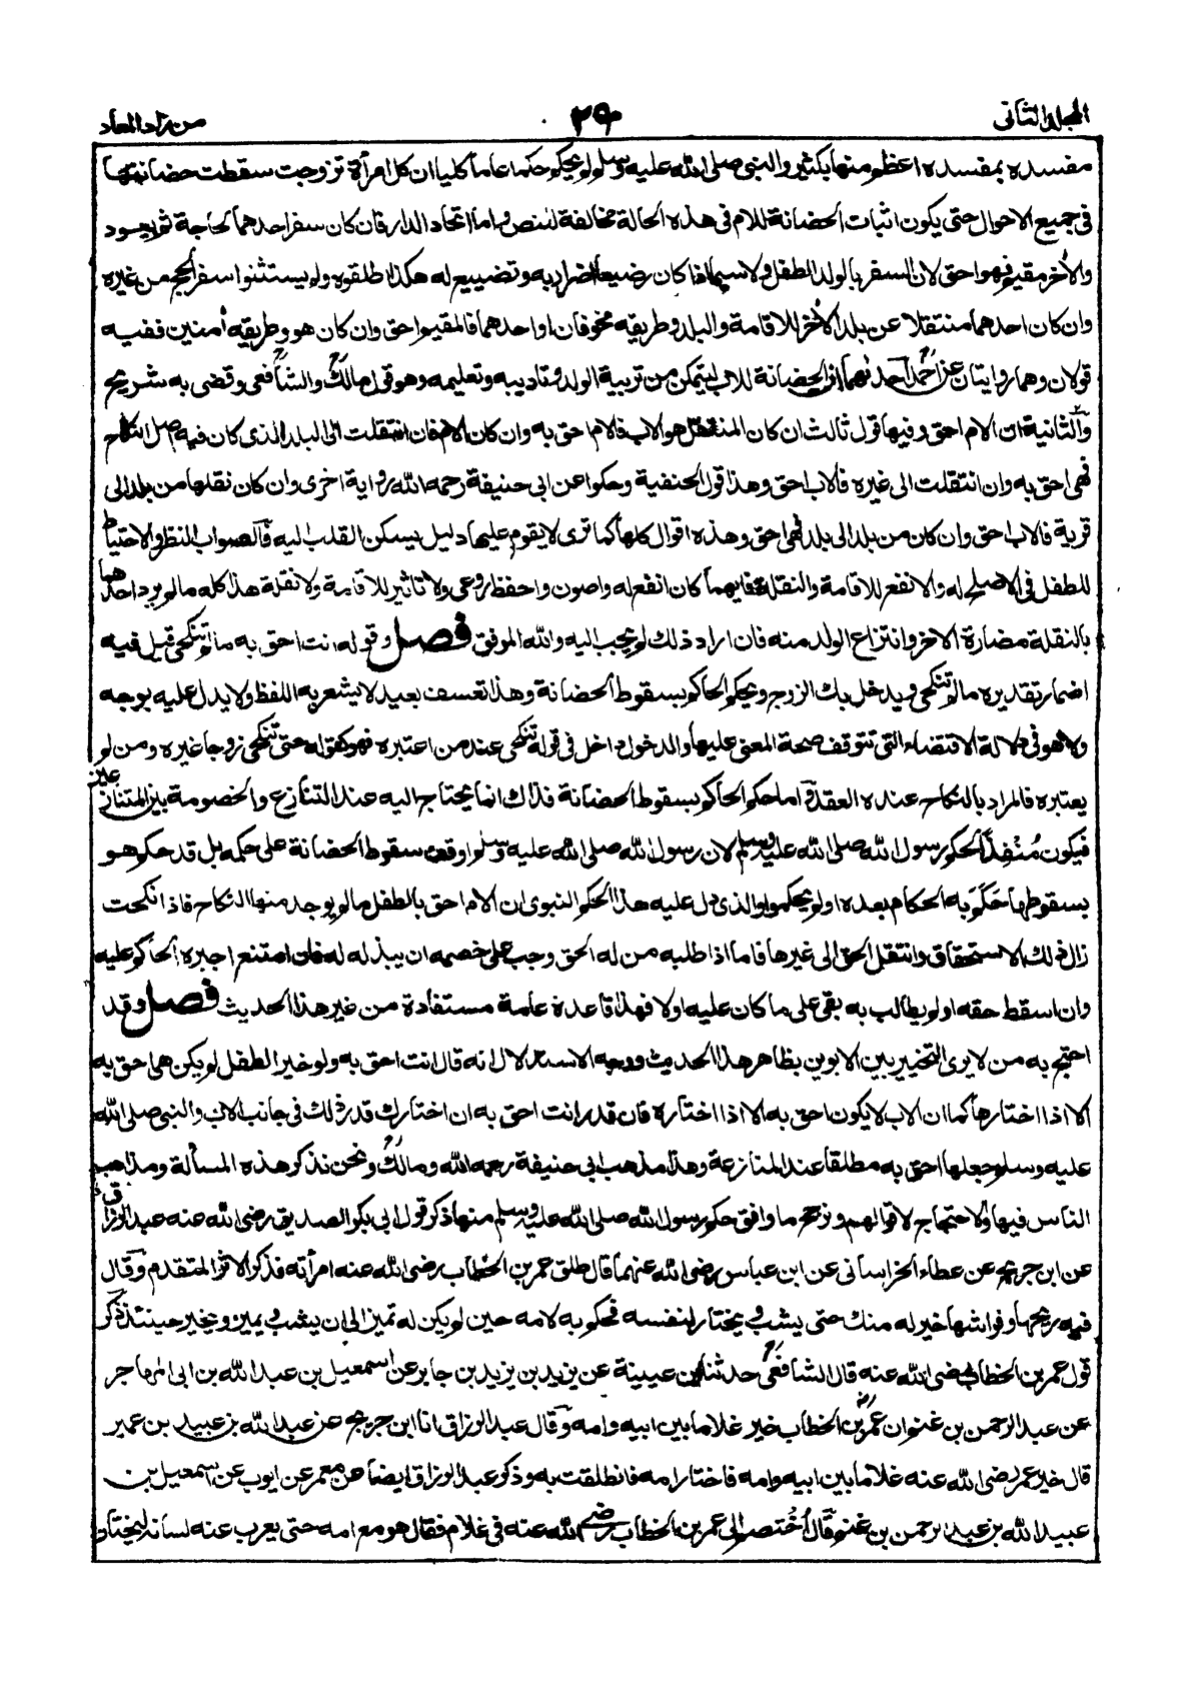 المجلد الثانى
٢٩٠
من زاد المعاد
مفسدة بمفسدة اعظم منها بكثير والنبى صلى الله عليه وسلم لم يحكم حكما عاما كليا ان كل امرأة تزوجت سقطت حضانتها
فى جميع الاحوال حتى يكون اثبات الحضانة للام فى هذه الحالة مخالفة للنص واما اتحاد الدار فان كان سفر احدهما لحاجة ثم يعود
والآخر مقيم فهو احق لان السفر بالولد الطفل ولا سيما اذا كان رضيعا اضرار به وتضييع له هكذا اطلقوه ولم يستثنوا سفر الحج من غيره
وان كان احدهما منتقلا عن بلد الآخر للاقامة والبلد وطريقه مخوفان او احدهما فالمقيم احق وان كان هو وطريقه أمنين ففيه
قولان وهما روايتان عن احمد احدٰهما ان الحضانة للاب ليتمكن من تربية الولد وتاديبه وتعليمه وهو قول مالك والشافعى وقضى به شريح
والثانية ان الام احق وفيها قول ثالث ان كان المنتقل هو الاب فالام احق به وان كان الام فان انتقلت الى البلد الذى كان فيه اصل النكاح
فهى احق به وان انتقلت الى غيره فالاب احق وهذا قول الحنفية وحكوا عن ابى حنيفة رحمه الله رواية اخرى وان كان نقلها من بلد الى
قرية فالاب احق وان كان من بلد الى بلد فهى احق وهذه اقوال كلها كما ترى لا يقوم عليها دليل يسكن القلب اليه فالصواب النظر والاحتياط
للطفل فى الاصلح له والانفع للاقامة والنقلة فايهما كان انفع له واصون واحفظ روعى ولا تاثير للاقامة ولا نقلة هذا كله ما لم يرد احدهما
بالنقلة مضارة الاخر وانتزاع الولد منه فان اراد ذلك لم يجب اليه والله الموفق فصل وقوله انت احق به ما لم تنكحى قيل فيه
اضمار تقديره ما لم تنكحى ويدخل بك الزوج ويحكم الحاكم بسقوط الحضانة وهذا تعسف بعيد لا يشعر به اللفظ ولا يدل عليه بوجه
ولا هو فى دلالة الاقتضاء التى تتوقف صحة المعنى عليها والدخول داخل فى قوله تنكحى عند من اعتبره فهو كقوله حتى تنكحى زوجا غيره ومن لم
يعتبره فالمراد بالنكاح عنده العقد واما حكم الحاكم بسقوط الحضانة فذاك انما يحتاج اليه عند التنازع والخصومة بين المتنازعين
فيكون مُنْفِذًا لحكم رسول الله صلى الله عليه وسلم لان رسول الله صلى الله عليه وسلم اوقف سقوط الحضانة على حكمه بل قد حكم هو
بسقوطها حَكَمَ به الحكام بعده او لم يحكموا والذى دل عليه هذا الحكم النبوى ان الام احق بالطفل ما لم يوجد منها النكاح فاذا نكحت
زال ذلك الاستحقاق وانتقل الحق الى غيرها فاما اذا طلبه من له الحق وجب على خصمه ان يبذله له فان امتنع اجبره الحاكم عليه
وان اسقط حقه او لم يطالب به بقى على ما كان عليه اولا فهذا قاعدة عامة مستفادة من غير هذا الحديث فصل وقد
احتج به من لا يرى التخيير بين الابوين بظاهر هذا الحديث ووجه الاستدلال انه قال انت احق به ولو خير الطفل لم يكن هى احق به
الا اذا اختارها كما ان الاب لا يكون احق به الا اذا اختاره فان قدر انت احق به ان اختارك قدر ذلك فى جانب الاب والنبى صلى الله
عليه وسلم جعلها احق به مطلقا عند المنازعة وهذا مذهب ابى حنيفة رحمه الله ومالك ونحن نذكر هذه المسألة ومذاهب
الناس فيها والاحتجاج لاقوالهم ونرجح ما وافق حكم رسول الله صلى الله عليه وسلم منها ذكر قول ابى بكر الصديق رضى الله عنه عبد الرزاق
عن ابن جريج عن عطاء الخراسانى عن ابن عباس رضى الله عنهما قال طلق عمر بن الخطاب رضى الله عنه امرأته فذكر الاثر المتقدم وقال
فيه ريحها وفراشها خير له منك حتى يشب ويختار لنفسه فحكم به لامه حين لم يكن له تميز الى ان يشب ويميز ويخير حينئذ ذكر
قول عمر بن الخطاب رضى الله عنه قال الشافعى حدثنا ابن عيينة عن يزيد بن يزيد بن جابر عن اسمعيل بن عبد الله بن ابى المهاجر
عن عبد الرحمن بن غنم ان عمر بن الخطاب خير غلاما بين ابيه وامه وقال عبد الرزاق انا ابن جريج عن عبد الله بن عبيد بن عمير
قال خير عمر رضى الله عنه غلاما بين ابيه وامه فاختار امه فانطلقت به وذكر عبد الرزاق ايضا عن معمر عن ايوب عن اسمعيل بن
عبيد الله بن عبد الرحمن بن غنم قال اُخْتصم الى عمر بن الخطاب رضى الله عنه فى غلام فقال هو مع امه حتى يعرب عنه لسانه ليختار